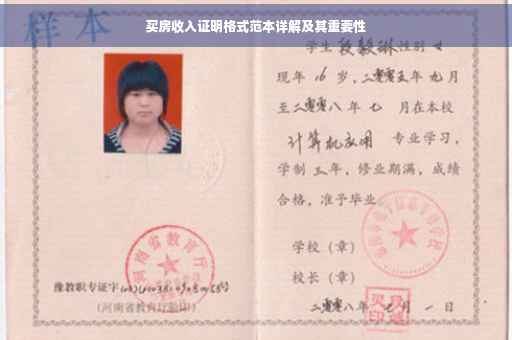 买房收入证明格式范本详解及其重要性
样本
学生段毅琳性别女
现年16岁，二零零五年九月
至二零零八年七月在本校
计算机应用 专业学习，
学制三年，修业期满，成绩
合格，准予毕业。
学校（章）
校长（章）
二零零八年七月一日
河南省教育厅
豫教职专证字
（河南省教育厅验印）